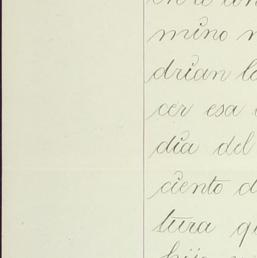 mino
drian la
cer esa
dia del
ciento d
tura q